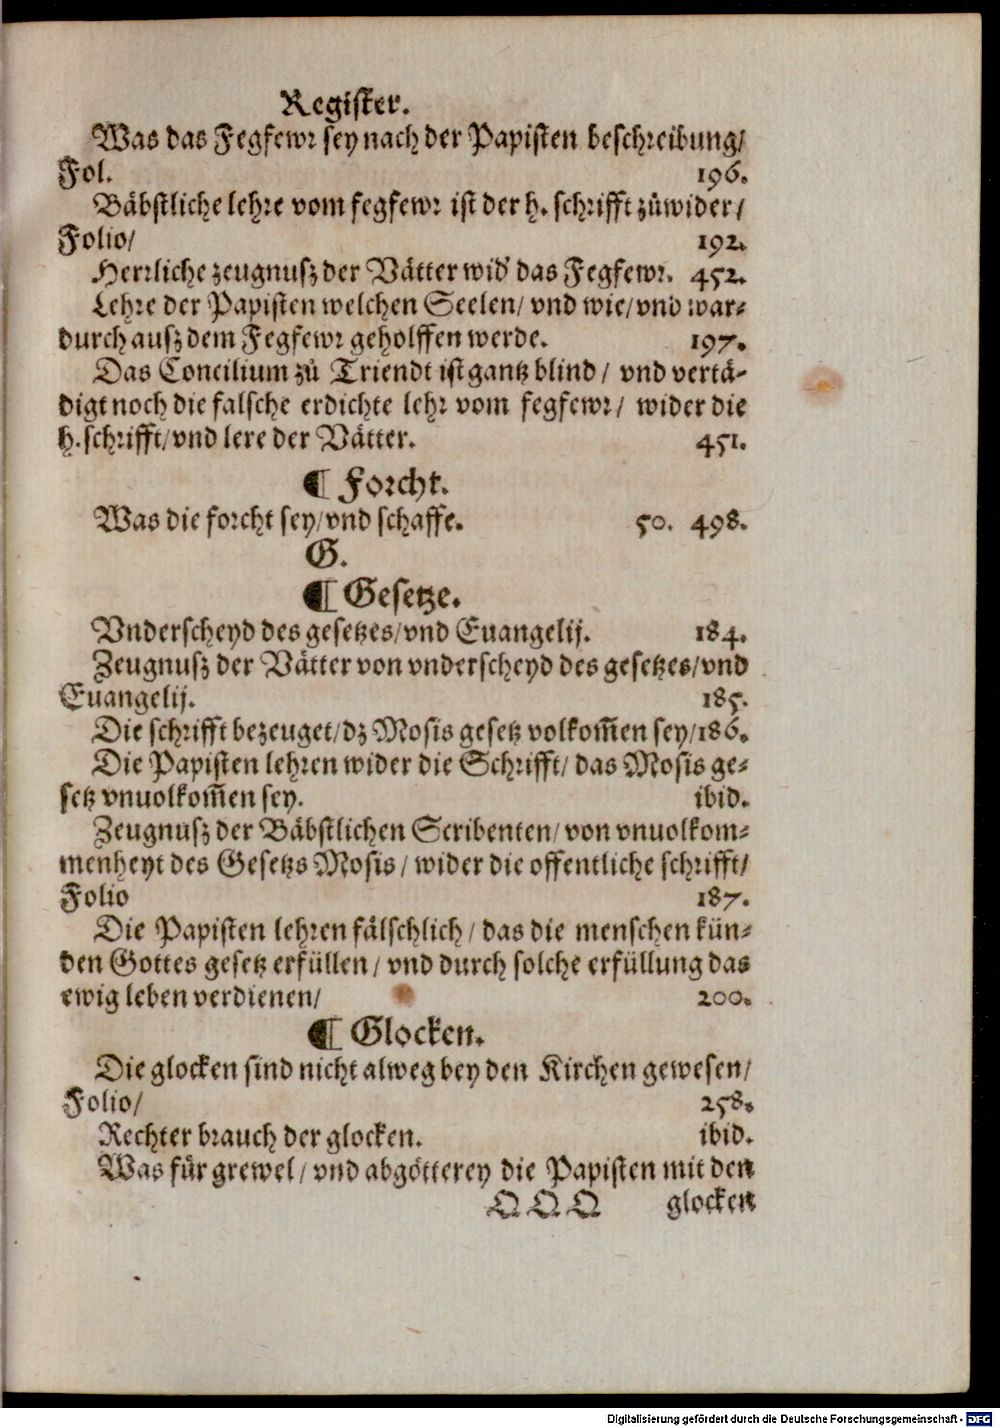 Register.
Was das Fegfewr sey nach der Papisten beschreibung/
Fol. 196.
Bäbstliche lehre vom fegfewr ist der h. schrifft zůwider/
Folio/ 192.
Herrliche zeugnusz der Vätter wid' das Fegfewr. 452.
Lehre der Papisten welchen Seelen/ vnd wie/ vnd war-
durch ausz dem Fegfewr geholffen werde. 197.
Das Concilium zů Triendt ist gantz blind/ vnd vertä-
digt noch die falsche erdichte lehr vom fegfewr/ wider die
h. schrifft/ vnd lere der Vätter. 451.
¶ Forcht.
Was die forcht sey/ vnd schaffe. 50. 498.
G.
¶ Gesetze.
Vnderscheyd des gesetzes/ vnd Euangelij. 184.
Zeugnusz der Vätter von vnderscheyd des gesetzes/ vnd
Euangelij. 185.
Die schrifft bezeuget/ dz Mosis gesetz volkom̃en sey/ 186.
Die Papisten lehren wider die Schrifft/ das Mosis ge-
setz vnuolkom̃en sey. ibid.
Zeugnusz der Bäbstlichen Scribenten/ von vnuolkom-
menheyt des Gesetzs Mosis/ wider die offentliche schrifft/
Folio 187.
Die Papisten lehren fälschlich/ das die menschen kün-
den Gottes gesetz erfüllen/ vnd durch solche erfüllung das
ewig leben verdienen/ 200.
¶ Glocken.
Die glocken sind nicht alweg bey den Kirchen gewesen/
Folio/ 258.
Rechter brauch der glocken. ibid.
Was für grewel/ vnd abgötterey die Papisten mit den
Q Q Q glocken
Digitalisierung gefördert durch die Deutsche Forschungsgemeinschaft - DFG